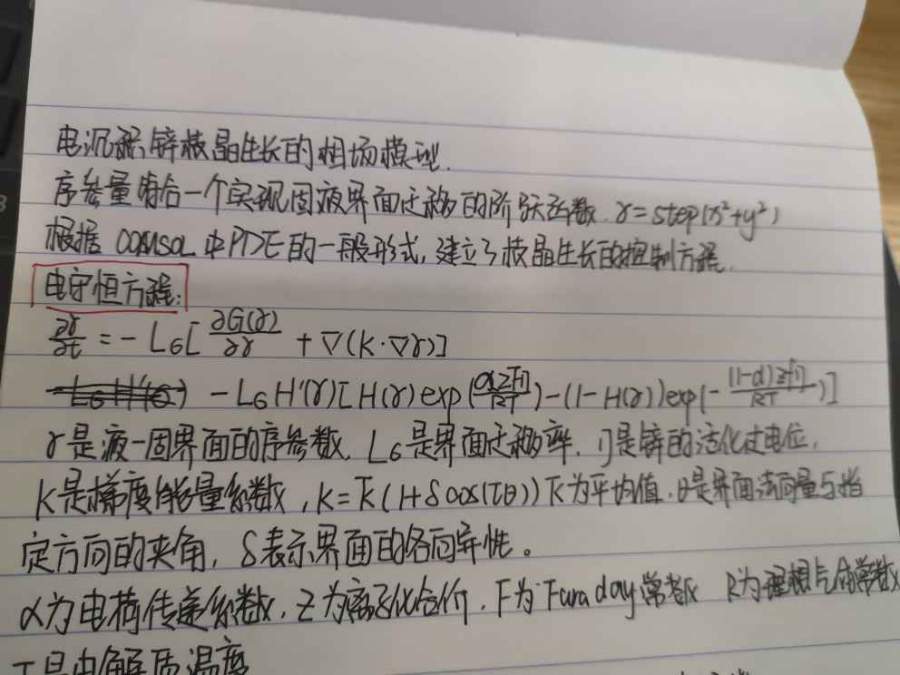 电沉积锌枝晶生长的相场模型.
序参量附合一个实现固液界面迁移的阶跃函数 γ=step(x²+y²)
根据 COMSOL 中PDE的一般形式,建立了枝晶生长的控制方程.
电守恒方程:
∂γ/∂t = - L₆[ ∂G(γ)/∂γ + ∇(K·∇γ)]
- L₆ H'(γ)[H(γ)exp(αzFη/RT)-(1-H(γ))exp(-(1-α)zFη/RT)]
γ是液-固界面的序参数, L₆是界面迁移率, η是锌的活化过电位,
K是梯度能量系数, K=K̄(1+δcos(τθ)) K̄为平均值, θ是界面法向量与指
定方向的夹角, δ表示界面的各向异性。
α为电荷传递系数, Z为离子化合价, F为Faraday常数 R为理想气体常数
T是电解质温度